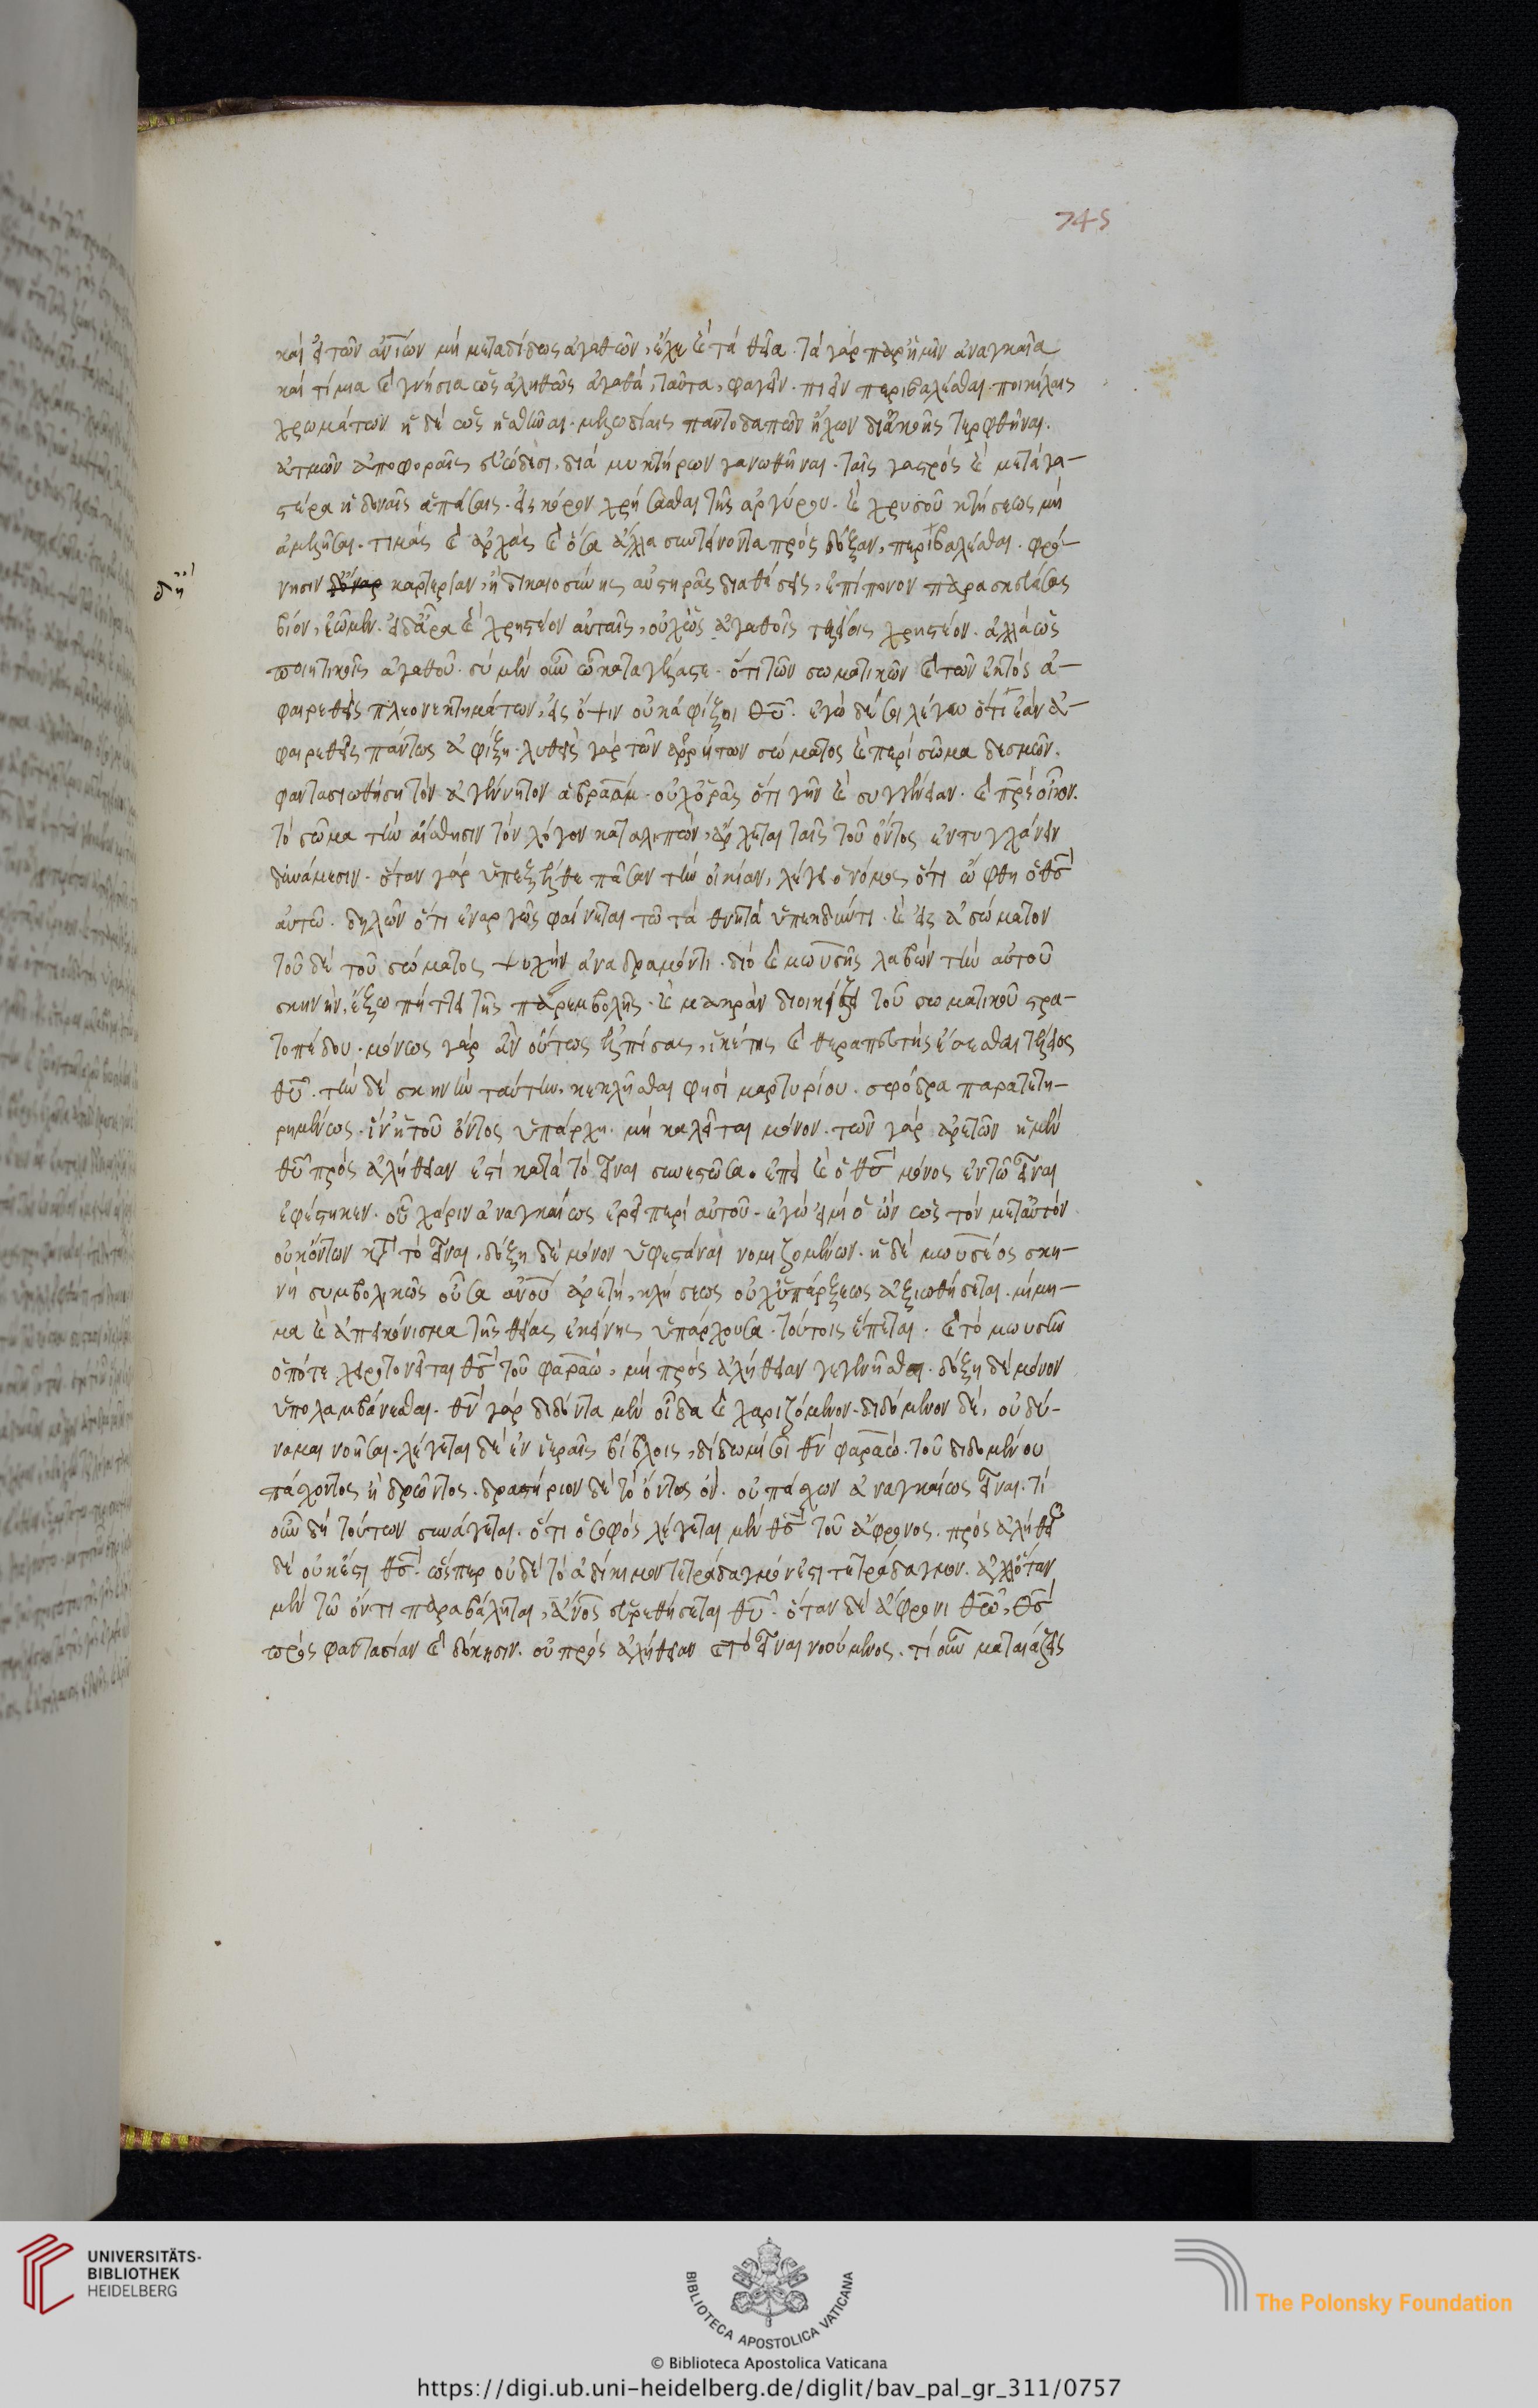 745
καὶ εἰ τῶν ἀντίων μὴ μεταδίδως ἀγαθῶν, ἔχε καὶ τὰ θεῖα. τὰ γὰρ παρ' ἡμῖν ἀναγκαῖα
καὶ τίμια καὶ γνήσια ὡς ἀληθῶς ἀγαθά, ταῦτα, φαγεῖν. πιεῖν περιβαλέσθαι. ποικίλαις
χρωμάτων ἡδέως ἡσθῶσαι. μελωδίαις παντοδαπῶν ἤχων δι' ἀκοῆς τερφθῆναι.
ἀτμῶν ἀποφοραῖς εὐώδεσι, διὰ μυκτήρων γανωθῆναι. ταῖς γαστρὸς καὶ μετὰ γα-
στέρα ἡδοναῖς ἁπάσαις. εἰς κόρον χρήσασθαι τῆς ἀργύρου. καὶ χρυσοῦ κτήσεως μὴ
ἀμελῆσαι. τιμὰς καὶ ἀρχὰς καὶ ὅσα ἄλλα συντείνοντα πρὸς δόξαν, περιβαλέσθαι. φρό-
δὴ
νησιν καρτερίαν, ἢ δικαιοσύνης αὐστηρὰς διαθέσεις, ἐπίπονον παρασκευάσας
βίον, ἐῶμεν. εἰ δ' ἄρα καὶ χρηστέον αὐταῖς, οὐχ ὡς ἀγαθοῖς τελείοις χρηστέον. ἀλλὰ ὡς
ποιητικοῖς ἀγαθοῦ. σὺ μὲν οὖν ὦ καταγέλαστε. ὅτι τῶν σωματικῶν καὶ τῶν ἐκτὸς ἀ-
φαιρεθεὶς πλεονεκτημάτων, εἰς ὄψιν οὐκ ἀφίξῃ θῡ. ἐγὼ δέ σοι λέγω ὅτι ἐὰν ἀ-
φαιρεθῇς πάντως ἀφίξῃ. λυθεὶς γὰρ τῶν ἀρρήτων σώματος καὶ περὶ σῶμα δεσμῶν.
φαντασιωθήσῃ τὸν ἀγέννητον ἀβραὰμ. οὐχ ὁρᾷς ὅτι γῆν καὶ συγγένειαν. καὶ πρς οἶκον.
τὸ σῶμα τὴν αἴσθησιν τὸν λόγον καταλιπών, ἄρχεται ταῖς τοῦ ὄντος ἐντυγχάνειν
δυνάμεσιν. ὅταν γὰρ ὑπεξέλθῃ πᾶσαν τὴν οἰκίαν, λέγει ὁ νόμος ὅτι ὤφθη ὁ θς
αὐτῷ. δηλῶν ὅτι ἐναργῶς φαίνεται τῷ τὰ θνητὰ ὑπεκδύντι. καὶ εἰς ἀσώματον
τοῦδε τοῦ σώματος ψυχὴν ἀναδραμόντι. διὸ καὶ μωυσῆς λαβὼν τὴν αὐτοῦ
σκηνὴν, ἔξω πήττει τῆς παρεμβολῆς. καὶ μακρὰν διοικίζει τοῦ σωματικοῦ στρα-
τοπέδου. μόνως γὰρ ἂν οὕτως ἐλπίσας, ἱκέτης καὶ θεραπευτὴς ἔσεσθαι τέλειος
θῡ. τὴν δὲ σκηνὴν ταύτην. κεκλῆσθαι φησὶ μαρτυρίου. σφόδρα παρατετη-
ρημένως. ἵν' ἡ τοῦ ὄντος ὑπάρχῃ. μὴ καλεῖται μόνον. τῶν γὰρ ἀρετῶν ἡ μὲν
θῡ πρὸς ἀλήθειαν ἐστὶ κατὰ τὸ εἶναι συνεστῶσα. ἐπεὶ καὶ ὁ θς μόνος ἐν τῷ εἶναι
ἐφέστηκεν. οὗ χάριν ἀναγκαίως ἐρεῖ περὶ αὐτοῦ. ἐγώ εἰμι ὁ ὢν ὡς τῶν μετ' αὐτὸν
οὐκ ὄντων κτ τὸ εἶναι, δόξῃ δὲ μόνον ὑφεστάναι νομιζομένων. ἡ δὲ μωυσέος σκη-
νὴ συμβολικῶς οὖσα ἀνοῦ ἀρετή, κλήσεως οὐχ ὑπάρξεως ἀξιωθήσεται. μίμη-
μα καὶ ἀπεικόνισμα τῆς θείας ἐκείνης ὑπάρχουσα. τούτοις ἕπεται. καὶ τὸ μωυσῆν
ὁπότε χειροτονεῖται θς τοῦ φαραώ, μὴ πρὸς ἀλήθειαν γεγενῆσθαι. δόξῃ δὲ μόνον
ὑπολαμβάνεσθαι. θν γὰρ διδόντα μὲν οἶδα καὶ χαριζόμενον. διδόμενον δέ, οὐ δύ-
ναμαι νοῆσαι. λέγεται δὲ ἐν ἱεραῖς βίβλοις, δίδωμί σε θν φαραώ. τοῦ διδομένου
πάσχοντος ἢ δρῶντος. δραστήριον δὲ τὸ ὄντως ὄν. οὐ πάσχων ἀναγκαίως εἶναι. τί
οὖν δὴ τούτων συνάγεται. ὅτι ὁ σοφὸς λέγεται μὲν θς τοῦ ἄφρονος. πρὸς ἀλήθειαν
δὲ οὐκ ἔστι θς. ὥσπερ οὐδὲ τὸ ἀδόκιμον τετράδραχμόν ἐστι τετράδραχμον. ἀλλ' ὅταν
μὲν τῷ ὄντι παραβάληται, ἄνος εὑρεθήσεται θῡ. ὅταν δὲ ἄφρονι θῶ, θς
πρὸς φαντασίαν καὶ δόκησιν. οὐ πρὸς ἀλήθειαν καὶ τὸ εἶναι νοούμενος. τί οὖν ματαιάζεις
UNIVERSITÄTS-
BIBLIOTHEK
HEIDELBERG
BIBLIOTECA APOSTOLICA VATICANA
The Polonsky Foundation
© Biblioteca Apostolica Vaticana
https://digi.ub.uni-heidelberg.de/diglit/bav_pal_gr_311/0757